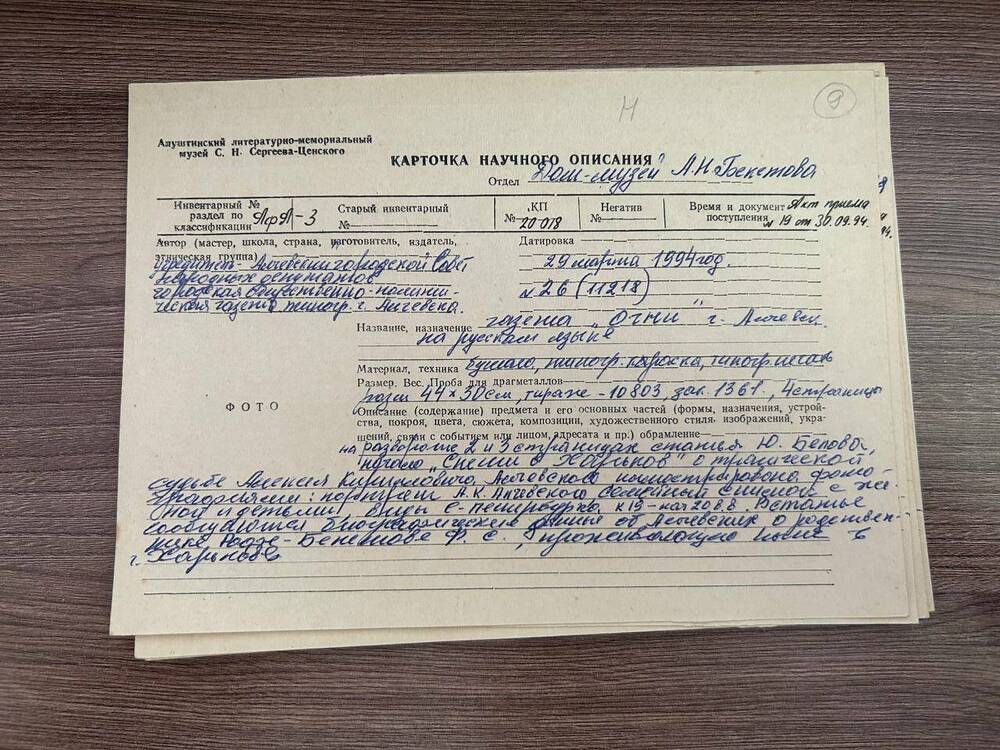 Н
9
Алуштинский литературно-мемориальный
музей С. Н. Сергеева-Ценского
КАРТОЧКА НАУЧНОГО ОПИСАНИЯ
Отдел „Дом-музей А.Н. Бекетова
Инвентарный №
раздел по
классификации АФЛ-3
Старый инвентарный
№
КП
№ 20018
Негатив
№
Время и документ Акт приема
поступления № 19 от 30.09.94.
Автор (мастер, школа, страна, изготовитель, издатель,
этническая группа)
Учредитель - Алчевский городской Совет
народных депутатов
городская общественно-полити-
ческая газета типогр. г. Алчевска.
Датировка
29 марта 1994 год.
№ 26 (11218)
Название, назначение газета „Огни" г. Алчевск
на русском языке
Материал, техника бумага, типогр. краска, типогр. печать
Размер, Вес. Проба для драгметаллов
разм 44×30 см, тираж - 10803, зак. 1361, 4 страницы
ФОТО
Описание (содержание) предмета и его основных частей (формы, назначения, устрой-
ства, покроя, цвета, сюжета, композиции, художественного стиля, изображений, укра-
шений, связи с событием или лицом, адресата и пр.) обрамление
на развороте 2 и 3 страницах статья Ю. Белова,
начало „Спеши в Харьков" о трагической
судьбе Алексея Кирилловича Алчевского иллюстрирована фото-
графиями: портрет А.К. Алчевского семейный снимок с же-
ной и детьми виды С-Петербурга к. 19 - нач 20 в.в. В статье
сообщаются биографические данные об Алчевских о родствен-
нике Бекетове Ф. С., проживающую ныне в
г. Харькове